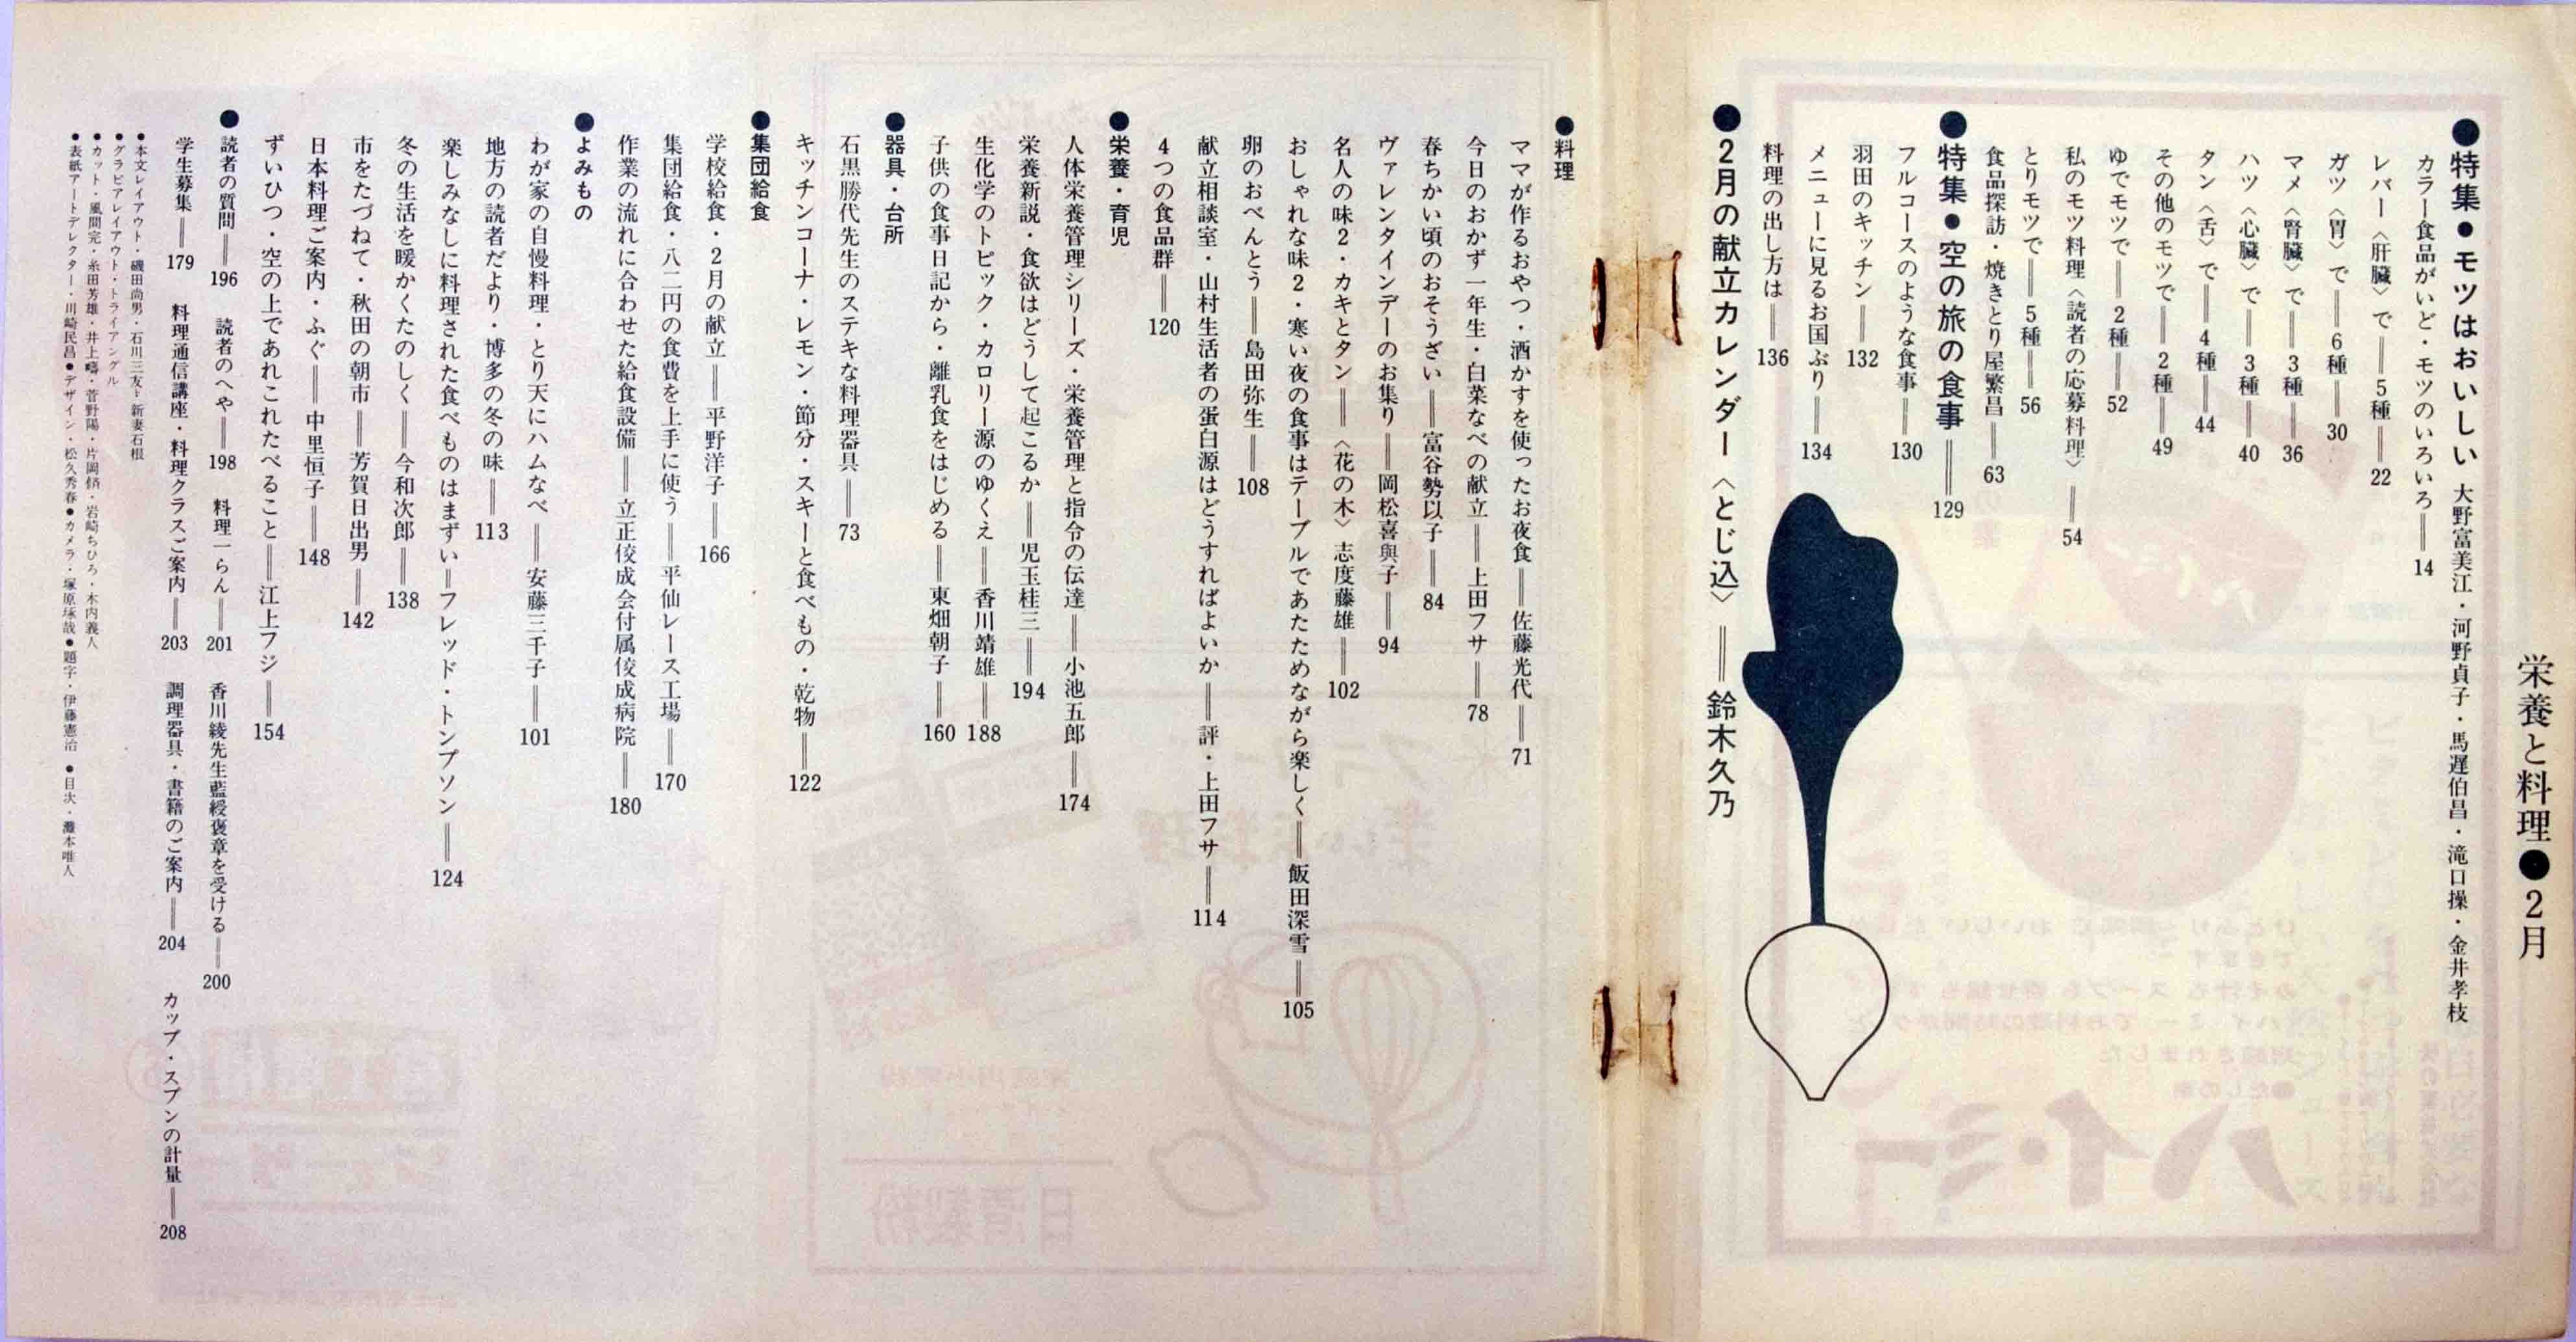 栄養と料理●2月
●特集●モツはおいしい 大野富美江・河野貞子・馬遅伯昌・滝口操・金井孝枝
カラー食品がいど・モツのいろいろ══14
レバー〈肝臓〉で══5種══22
ガツ〈胃〉で══6種══30
マメ〈腎臓〉で══3種══36
ハツ〈心臓〉で══3種══40
タン〈舌〉で══4種══44
その他のモツで══2種══49
ゆでモツで══2種══52
私のモツ料理〈読者の応募料理〉══54
とりモツで══5種══56
食品探訪・焼きとり屋繁昌══63
●特集●空の旅の食事══129
フルコースのような食事══130
羽田のキッチン══132
メニューに見るお国ぶり══134
料理の出し方は══136
●2月の献立カレンダー〈とじ込〉══鈴木久乃
●料理
ママが作るおやつ・酒かすを使ったお夜食══佐藤光代══71
今日のおかず一年生・白菜なべの献立══上田フサ══78
春ちかい頃のおそうざい══富谷勢以子══84
ヴァレンタインデーのお集り══岡松喜與子══94
名人の味2・カキとタン══〈花の木〉志度藤雄══102
おしゃれな味2・寒い夜の食事はテーブルであたためながら楽しく══飯田深雪══105
卵のおべんとう══島田弥生══108
献立相談室・山村生活者の蛋白源はどうすればよいか══評・上田フサ══114
4つの食品群══120
●栄養・育児
人体栄養管理シリーズ・栄養管理と指令の伝達══小池五郎══174
栄養新説・食欲はどうして起こるか══児玉桂三══194
生化学のトピック・カロリー源のゆくえ══香川靖雄══188
子供の食事日記から・離乳食をはじめる══東畑朝子══160
●器具・台所
石黒勝代先生のステキな料理器具══73
キッチンコーナ・レモン・節分・スキーと食べもの・乾物══122
●集団給食
学校給食・2月の献立══平野洋子══166
集団給食・八二円の食費を上手に使う══平仙レース工場══170
作業の流れに合わせた給食設備══立正佼成会付属佼成病院══180
●よみもの
わが家の自慢料理・とり天にハムなべ══安藤三千子══101
地方の読者だより・博多の冬の味══113
楽しみなしに料理された食べものはまずい＝フレッド・トンプソン══124
冬の生活を暖かくたのしく══今和次郎══138
市をたづねて・秋田の朝市══芳賀日出男══142
日本料理ご案内・ふぐ══中里恒子══148
ずいひつ・空の上であれこれたべること══江上フジ══154
●読者の質問══196 読者のへや══198 料理一らん══201 香川綾先生藍綬褒章を受ける══200
学生募集══179 料理通信講座・料理クラスご案内══203 調理器具・書籍のご案内══204 カップ・スプンの計量══208
●本文レイアウト・磯田尚男・石川三友・新妻石根
●グラビアレイアウト・トライアングル
●カット・風間完・糸田芳雄・井上・菅野陽・片岡・岩崎ちひろ・木内義人
●表紙アートデレクター・川崎民昌●デザイン・松久秀春●カメラ・塚原琢哉●題字・伊藤憲治 ●目次・灘本唯人